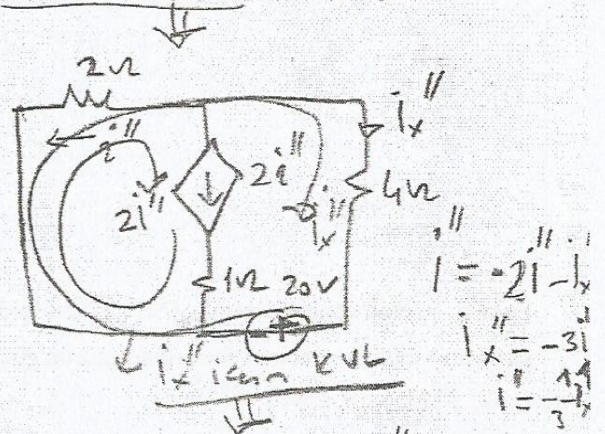 2Ω
i''
2i''
2i''
ix''
ix''
4Ω
1Ω 20V
ix'' için KVL
i'' = -2i'' - ix''
ix'' = -3i''
i'' = -1/3 ix''